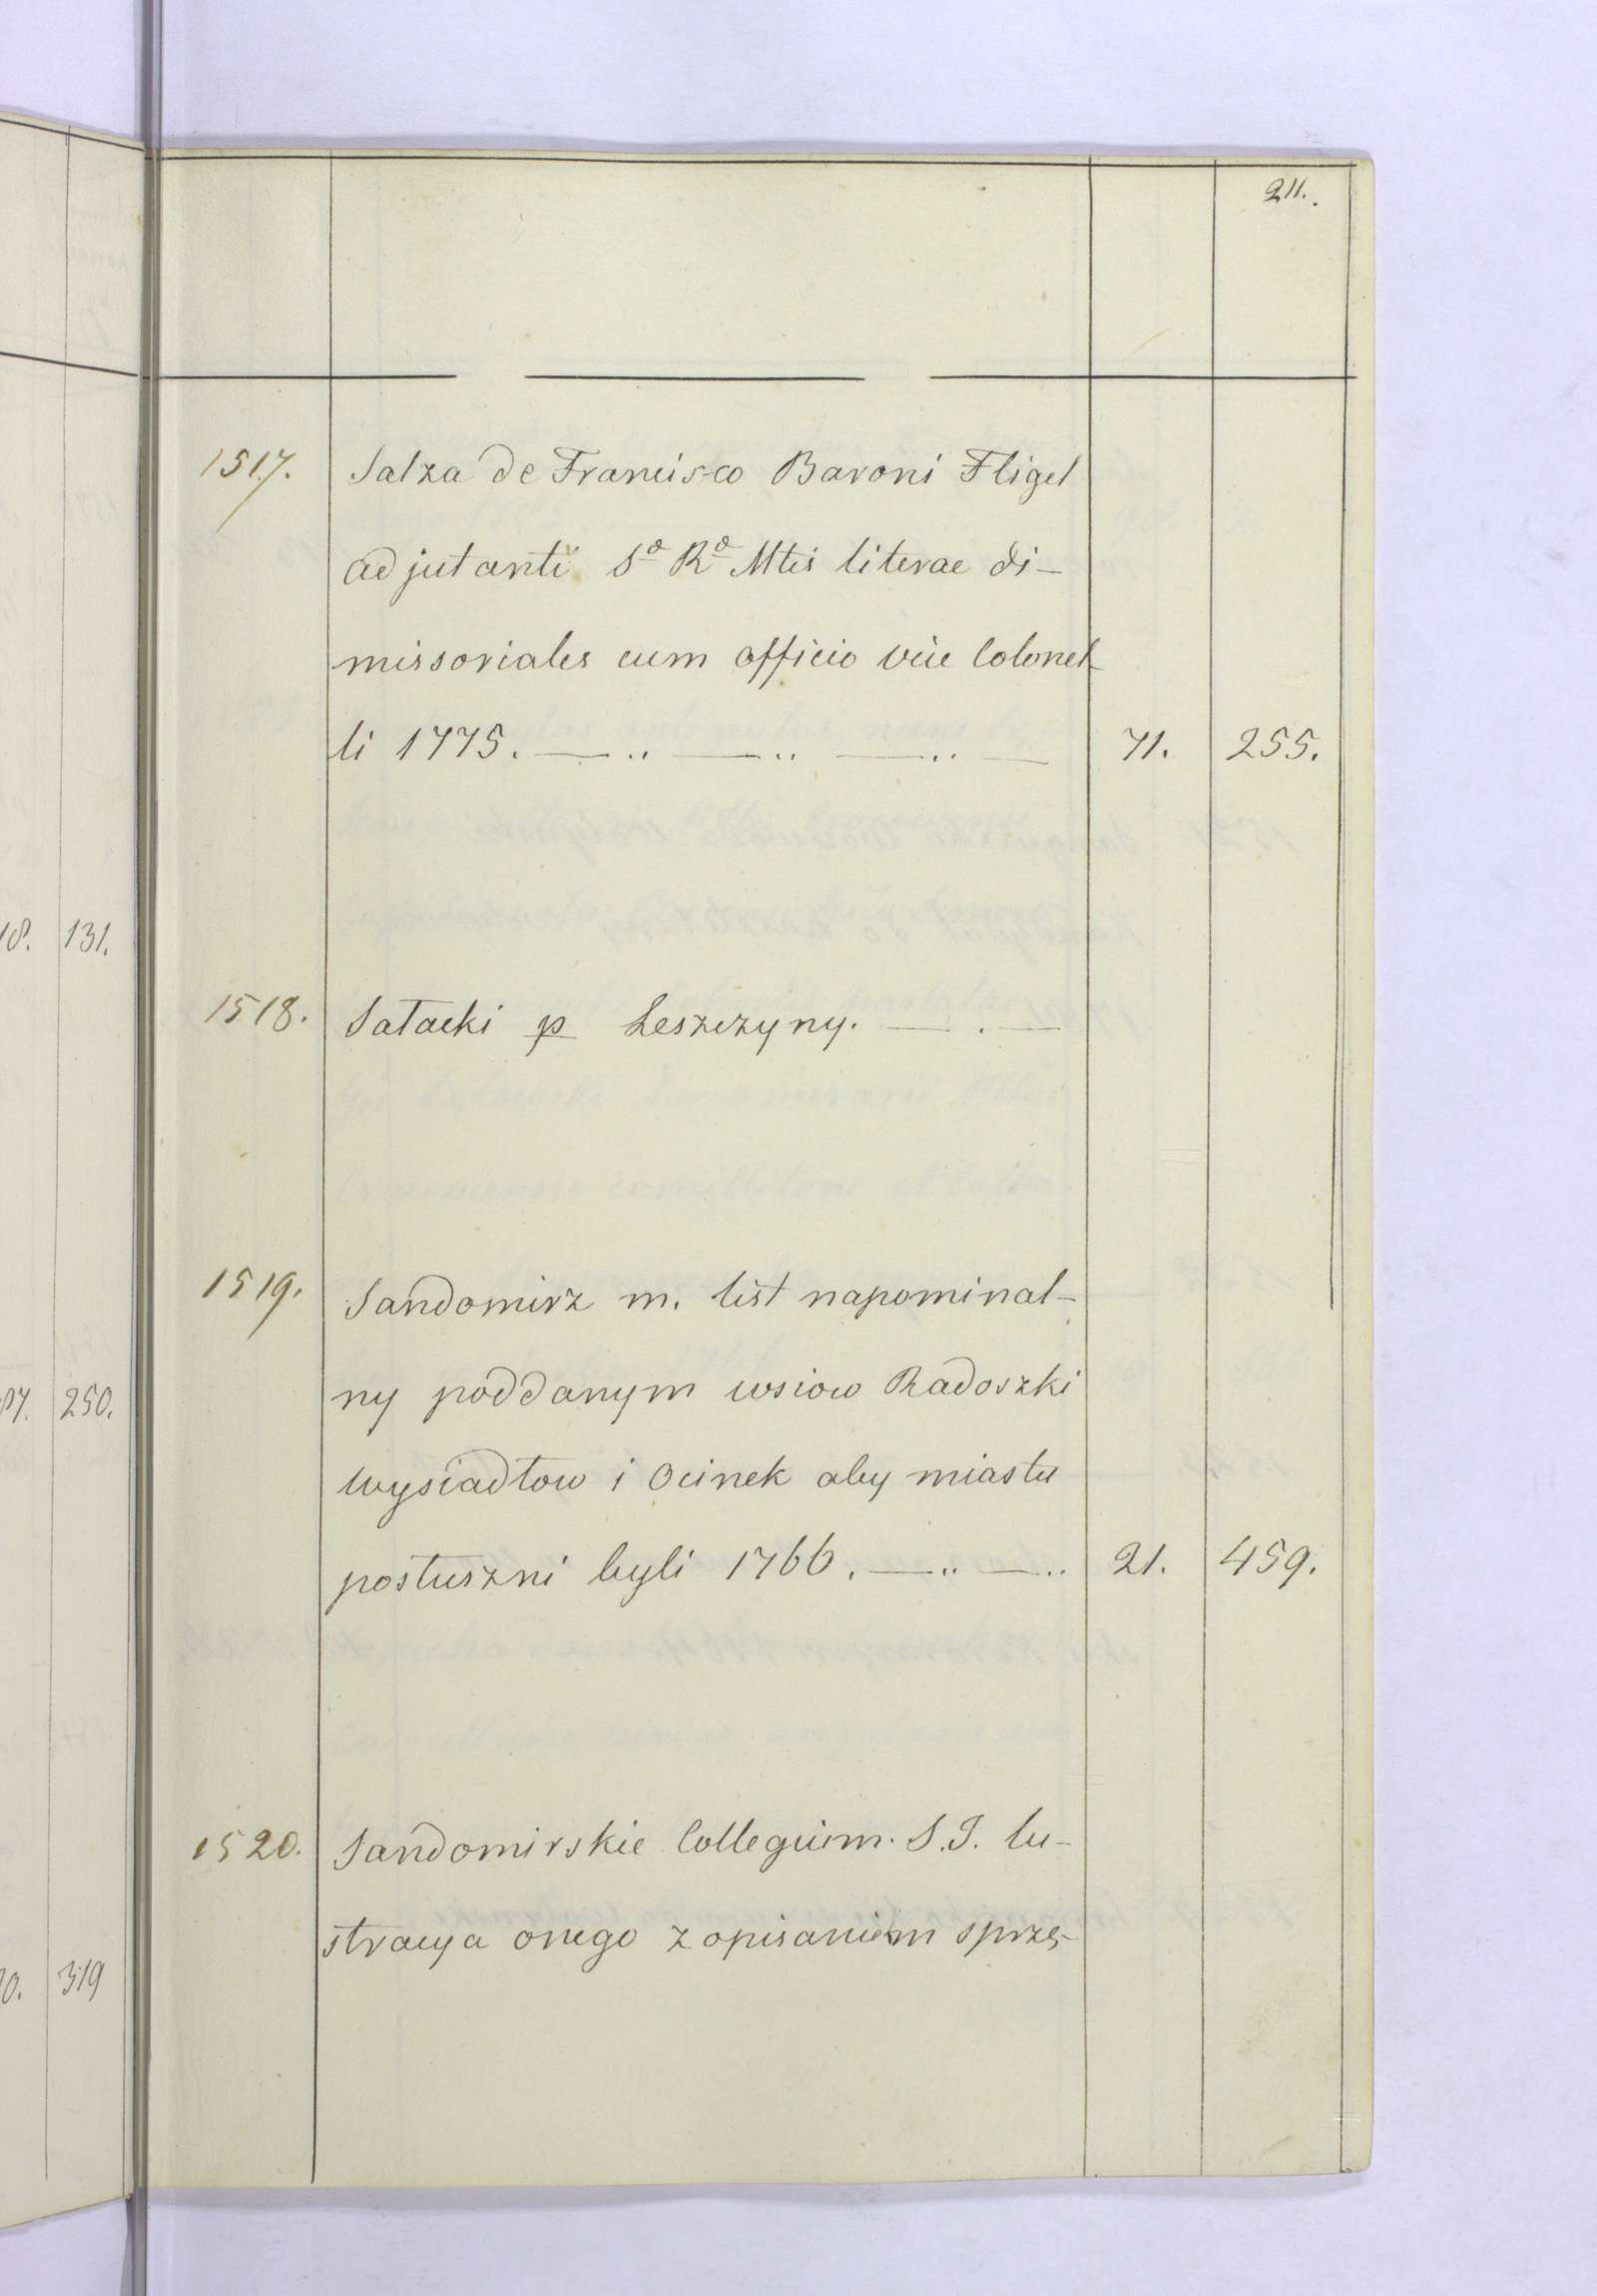 211.
1517. Salza de Francisco Baroni Fligel
adjutanti Sª Rª Mtis literae di-
missoriales cum officio vice Colonel-
li 1775. — „ — „ — „ — 71. 255.
1518. Sałacki p Leszczyny. — . —
1519. Sandomirz m. list napominal-
ny poddanym wsiow Radoszki
Wysiadłow i Ocinek aby miastu
posłuszni byli 1766. — „ — „ 21. 459.
1520. Sandomirskie Collegium. S.J. lu-
stracya onego z opisaniem sprzę-
131.
250.
319